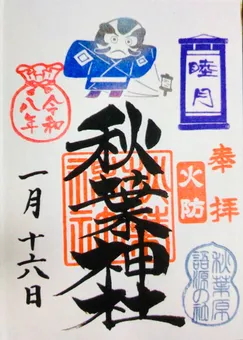 睦月
奉拝
火防
秋葉神社
秋葉原
語源の社
令和
八年
一月十六日